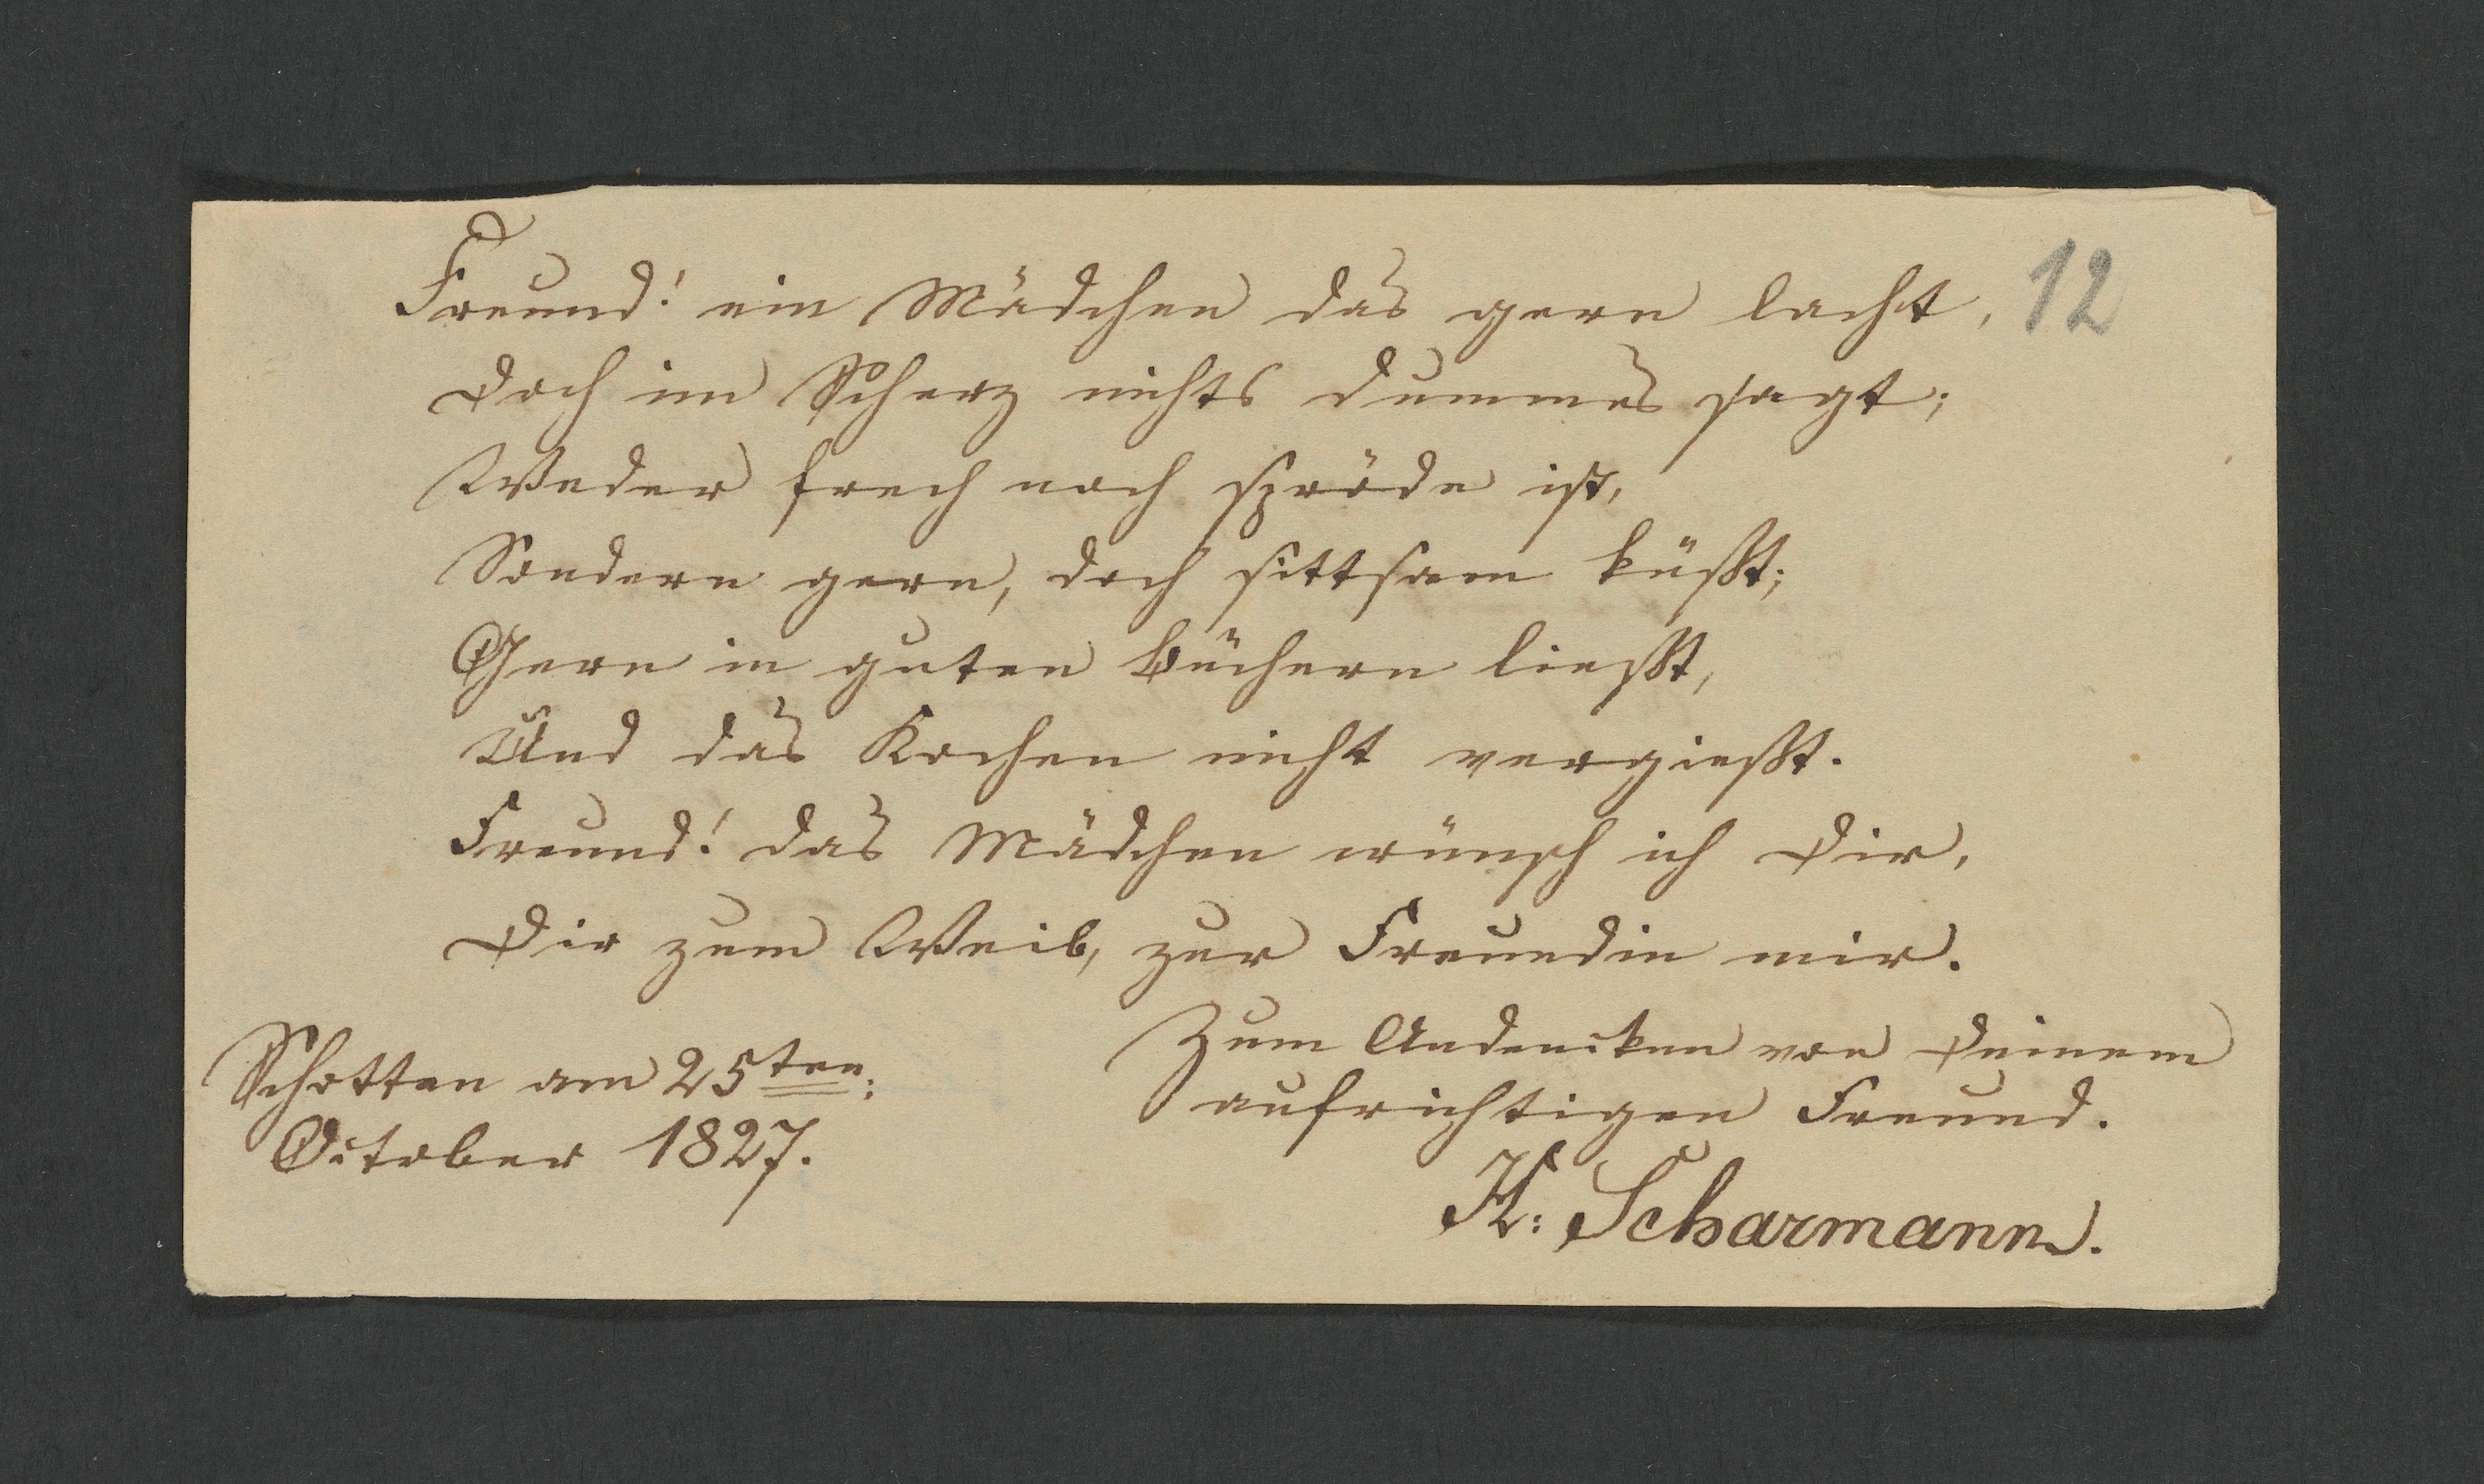 Freund! ein Mädchen das gern lacht,
12
Doch im Scherz nichts dummes sagt;
Weder frech noch spröde ist,
Sondern gern, doch sittsam küßt;
Gern in guten Büchern ließt,
Und das Kochen nicht vergießt.
Freund! das Mädchen wünsch ich Dir,
Dir zum Weib, zur Freundin mir.
Zum Andencken von Deinem
aufrichtigen Freund.
K: Scharmann.
Schotten am 25ten:
October 1827.